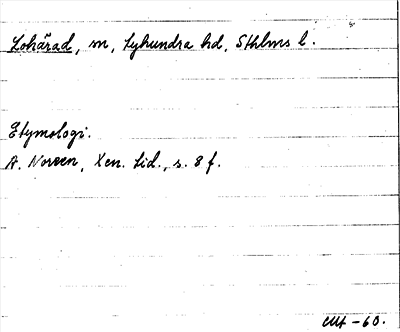 Lohärad, sn, Lyhundra hd, Sthlms l.
Etymologi.
A. Noreen, Xen. Lid., s. 8 f.
-60.